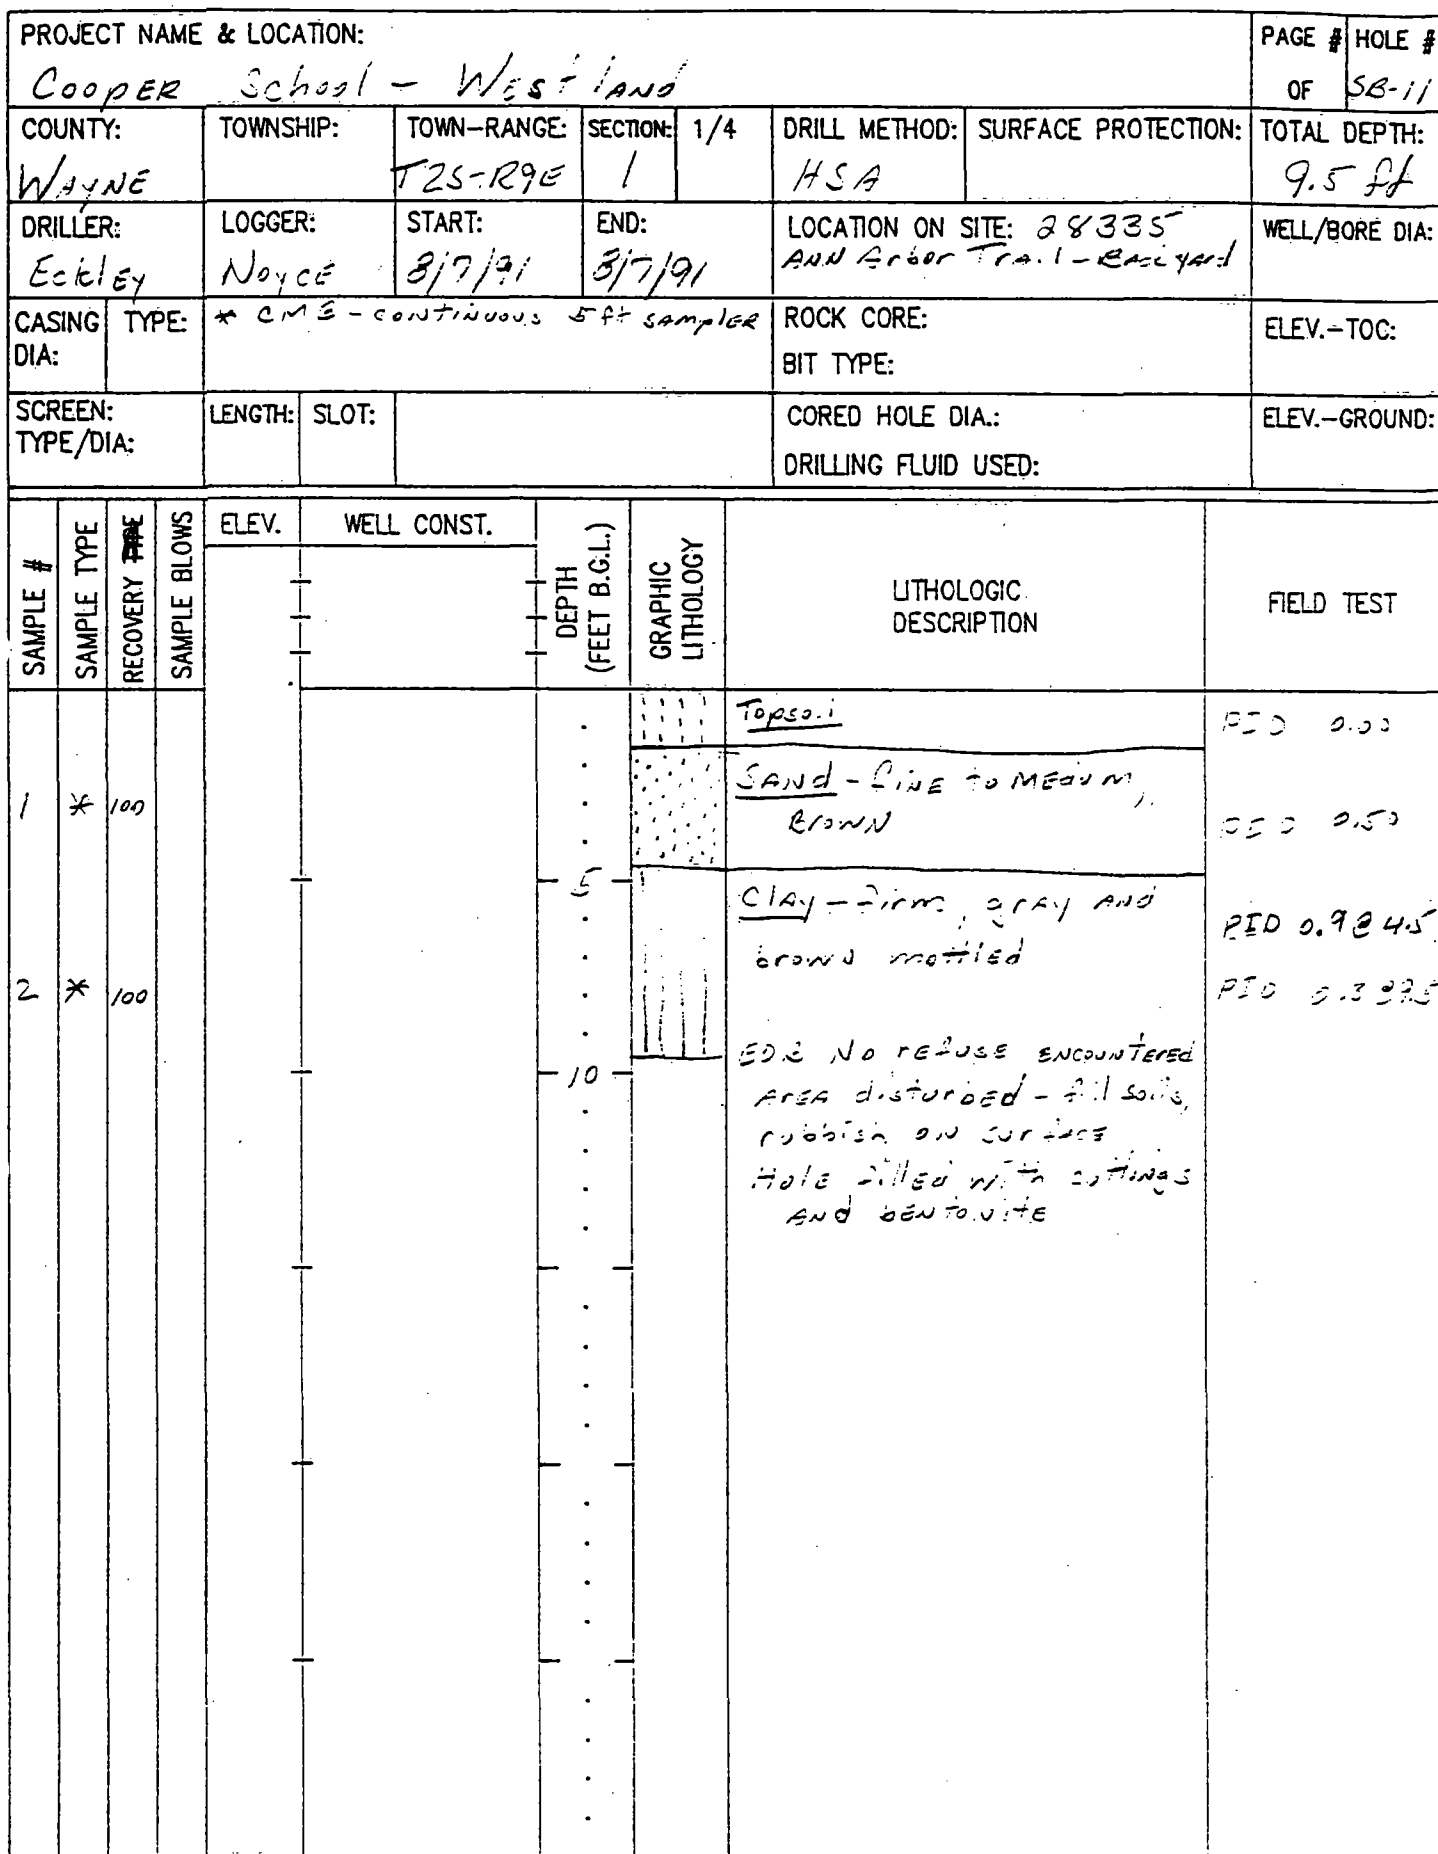 PROJECT NAME & LOCATION:
Cooper School - Westland
PAGE #
OF
HOLE #
SB-11
COUNTY:
Wayne
TOWNSHIP:
TOWN-RANGE:
T2S-R9E
SECTION:
1
1/4
DRILL METHOD:
HSA
SURFACE PROTECTION:
TOTAL DEPTH:
9.5 ft
DRILLER:
Eckley
LOGGER:
Noyce
START:
8/7/91
END:
8/7/91
LOCATION ON SITE: 28335
Ann Arbor Trail - Backyard
WELL/BORE DIA:
CASING
DIA:
TYPE:
* CME - continuous 5 ft sampler
ROCK CORE:
BIT TYPE:
ELEV.-TOC:
SCREEN:
TYPE/DIA:
LENGTH:
SLOT:
CORED HOLE DIA.:
DRILLING FLUID USED:
ELEV.-GROUND:
SAMPLE #
SAMPLE TYPE
RECOVERY
SAMPLE BLOWS
ELEV.
WELL CONST.
DEPTH
(FEET B.G.L.)
GRAPHIC
LITHOLOGY
LITHOLOGIC
DESCRIPTION
FIELD TEST
Topsoil
PID 0.00
Sand - fine to medium,
brown
1 * 100
PID 0.50
5
Clay - firm, gray and
brown mottled
PID 0.9 @ 4.5
2 * 100
PID 0.3 @ 9.5
EOB No refuse encountered
10
Area disturbed - fill soils,
rubbish on surface
Hole filled with cuttings
and bentonite